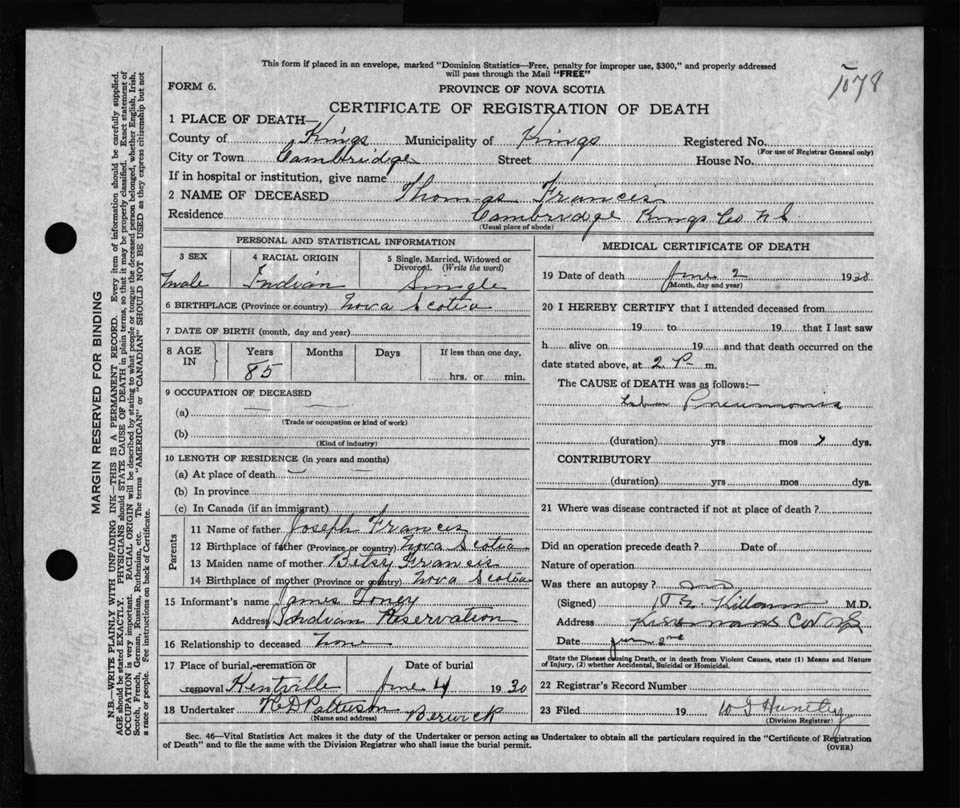 This form if placed in an envelope, marked "Dominion Statistics—Free, penalty for improper use, $300," and properly addressed
will pass through the Mail "FREE"
1078
FORM 6.
PROVINCE OF NOVA SCOTIA
CERTIFICATE OF REGISTRATION OF DEATH
1 PLACE OF DEATH—
County of Kings Municipality of Kings Registered No.
(For use of Registrar General only)
City or Town Cambridge Street House No.
If in hospital or institution, give name
2 NAME OF DECEASED Thomas Francis
Residence Cambridge Kings Co N S
(Usual place of abode)
PERSONAL AND STATISTICAL INFORMATION
3 SEX 4 RACIAL ORIGIN 5 Single, Married, Widowed or
Divorced. (Write the word)
Male Indian Single
6 BIRTHPLACE (Province or country) Nova Scotia
7 DATE OF BIRTH (month, day and year)
8 AGE IN Years Months Days If less than one day,
85 hrs. or min.
9 OCCUPATION OF DECEASED
(a)
(Trade or occupation or kind of work)
(b)
(Kind of industry)
10 LENGTH OF RESIDENCE (in years and months)
(a) At place of death
(b) In province
(c) In Canada (if an immigrant)
Parents
11 Name of father Joseph Francis
12 Birthplace of father (Province or country) Nova Scotia
13 Maiden name of mother Betsy Francis
14 Birthplace of mother (Province or country) Nova Scotia
15 Informant's name James Toney
Address Indian Reservation
16 Relationship to deceased None
17 Place of burial, cremation or Date of burial
removal Kentville June 4 1930
18 Undertaker Patterson Berwick
(Name and address)
MEDICAL CERTIFICATE OF DEATH
19 Date of death June 2 1930
(Month, day and year)
20 I HEREBY CERTIFY that I attended deceased from
19 to 19 that I last saw
h alive on 19 and that death occurred on the
date stated above, at 2 P m.
The CAUSE of DEATH was as follows:—
Pneumonia
(duration) yrs mos dys.
CONTRIBUTORY
(duration) yrs mos dys.
21 Where was disease contracted if not at place of death?
Did an operation precede death? Date of
Nature of operation
Was there an autopsy? no
(Signed) M.D.
Address
Date June 2nd
State the Disease causing Death, or in death from Violent Causes, state (1) Means and Nature
of Injury, (2) whether Accidental, Suicidal or Homicidal.
22 Registrar's Record Number
23 Filed 19
(Division Registrar)
Sec. 46—Vital Statistics Act makes it the duty of the Undertaker or person acting as Undertaker to obtain all the particulars required in the "Certificate of Registration
of Death" and to file the same with the Division Registrar who shall issue the burial permit.
(OVER)
MARGIN RESERVED FOR BINDING
N.B.—WRITE PLAINLY WITH UNFADING INK—THIS IS A PERMANENT RECORD. Every item of information should be carefully supplied.
AGE should be stated EXACTLY. PHYSICIANS should STATE CAUSE OF DEATH in plain terms, so that it may be properly classified. Exact statement of
OCCUPATION is very important. RACIAL ORIGIN will be described by stating to what people or tongue the deceased person belonged, whether English, Irish,
Scotch, French, German, Russian, Ruthenian, etc. The terms "AMERICAN" or "CANADIAN" SHOULD NOT BE USED as they express citizenship but not
a race or people. Fee instructions on back of Certificate.